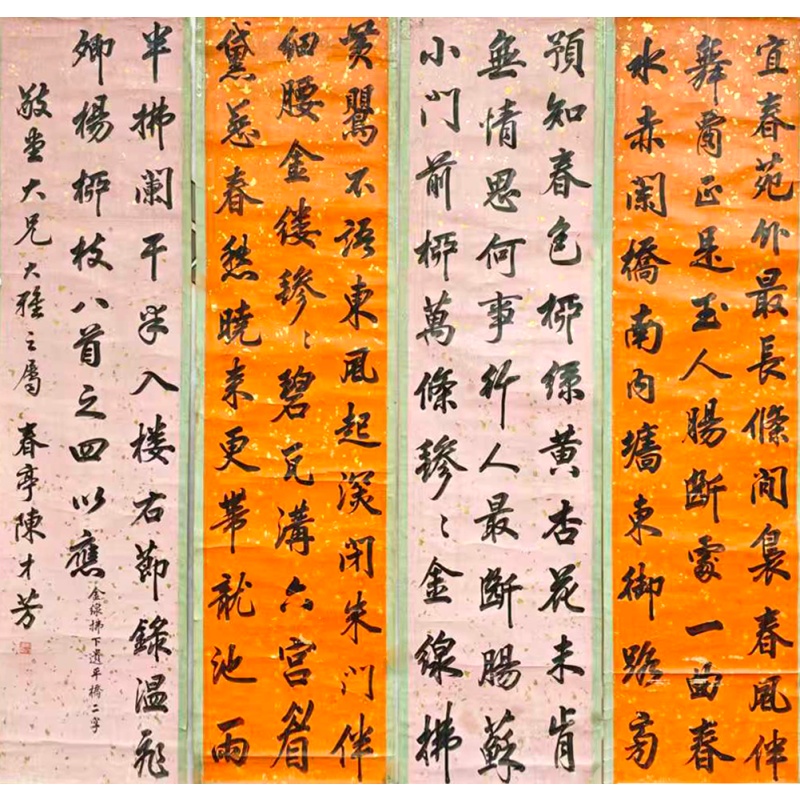 宜春苑外最長條閒裊春風伴
舞腰正是玉人腸斷處一曲春
水赤闌橋南內墻東御路旁
預知春色柳絲黃杏花未肯
無情思何事行人最斷腸蘇
小門前柳萬條毿〻金線拂
黃鶯不語東風起深閉朱門伴
細腰金縷毿〻碧瓦溝六宮眉
黛惹春愁曉來更帶龍池雨
半拂闌干半入楼右節錄溫飛
卿楊柳枝八首之四以應
金線拂下遺平橋二字
敬堂大兄大雅之屬 春亭陳才芳